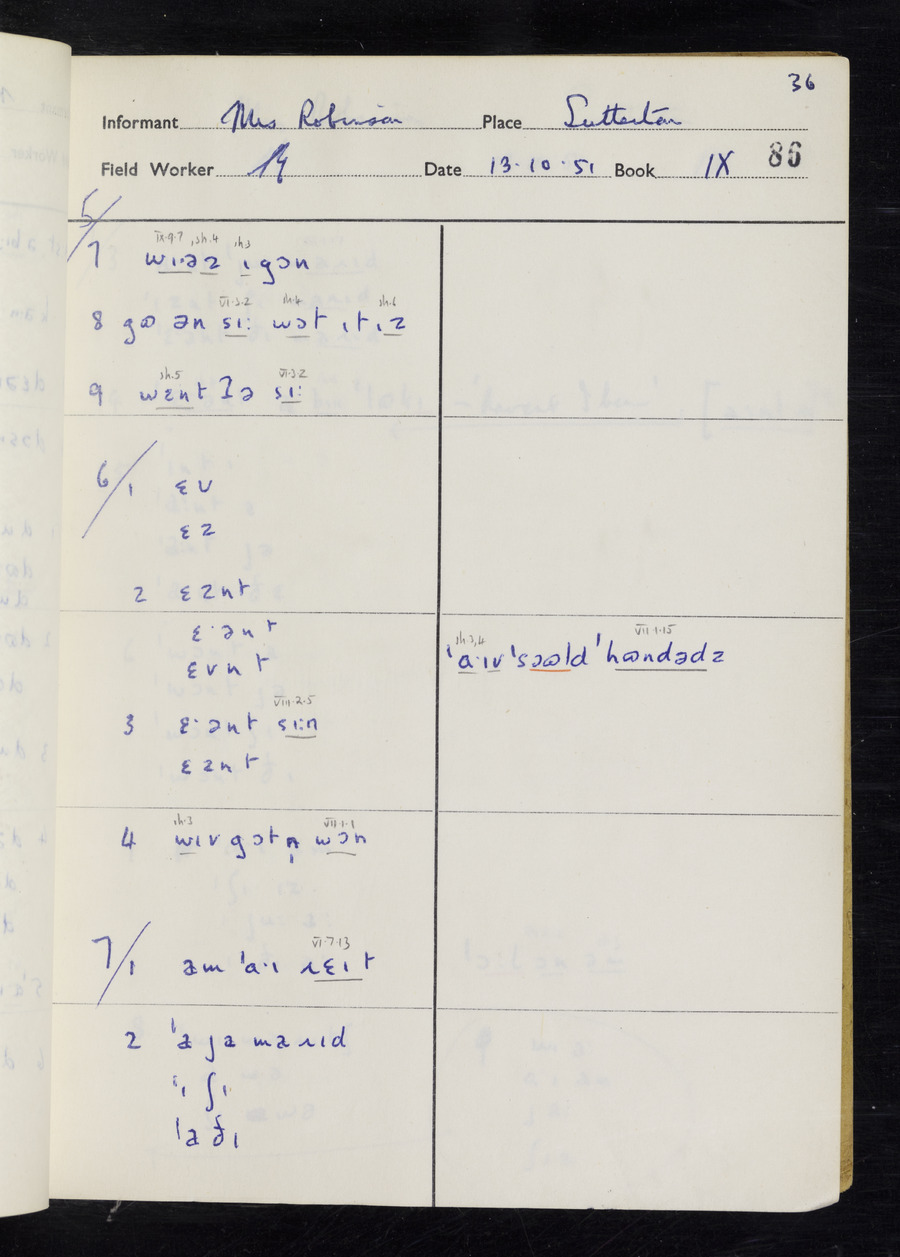 36
Informant Mrs Robinson Place Sutterton
Field Worker Date 13·10·51 Book IX 86
5/
IX·9·7 , sh.4 sh.3
7 wɪ·əz ɪ gɔn
VI·3·2 sh.4 sh.6
8 gɷ ən sɪ: wɔt ɪt ɪz
sh.5 VI·3·2
9 wɛnt ðə sɪ:
6/1 ɛv
ɛz
2 ɛznt
ɛ·ənt
ɛvnt
sh.3,4 VII·1·15
ˈa·ɪv ˈsɔɷld ˈhɷndədz
VIII·2·5
3 ɛ·ənt sɪ:n
ɛznt
sh.3 VII·1·1
4 wɪv gɔt n̩ wɔn
VI·7·13
7/1 am ˈa·ɪ ɹɛɪt
2 ˈa jə maɹɪd
ˈɪ ʃɪ
ˈa ðɪ